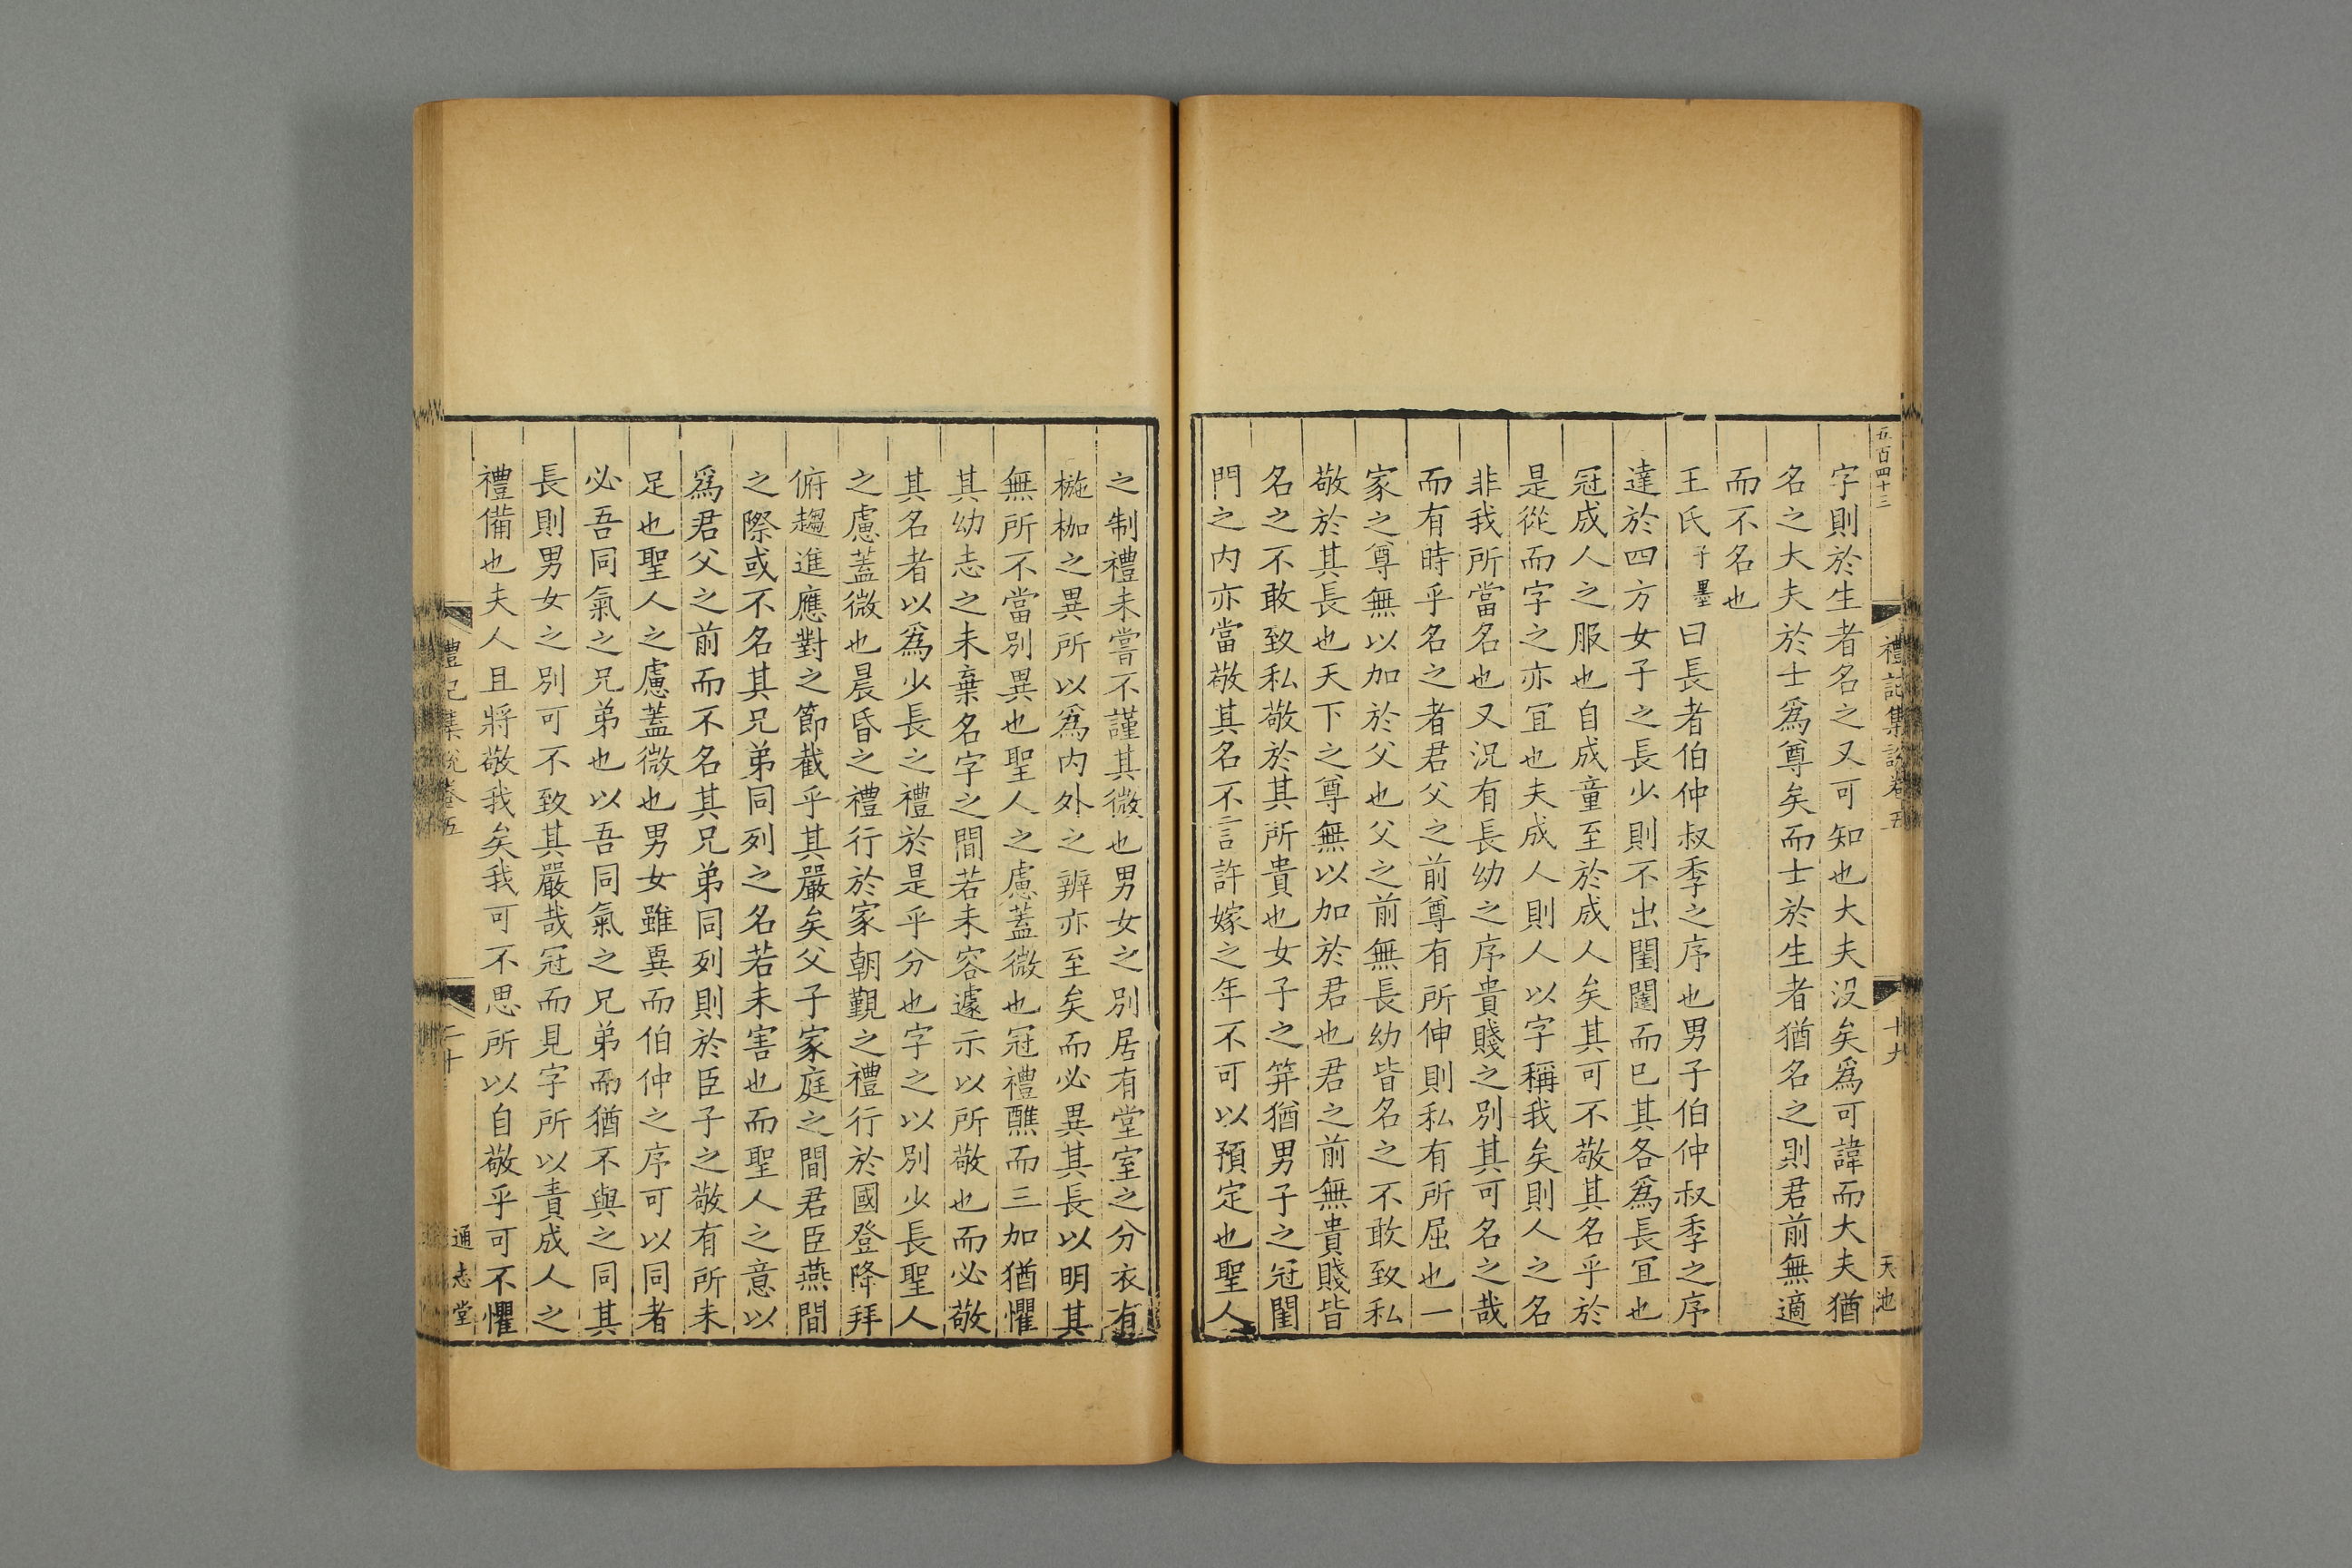 五百四十三
禮記集說卷五
十九
天池
字則於生者名之又可知也大夫没矣爲可諱而大夫猶
名之大夫於士爲尊矣而士於生者猶名之則君前無適
而不名也
王氏子墨曰長者伯仲叔季之序也男子伯仲叔季之序
達於四方女子之長少則不出閨闥而已其各爲長冝也
冠成人之服也自成童至於成人矣其可不敬其名乎於
是從而字之亦冝也夫成人則人以字稱我矣則人之名
非我所當名也又況有長幼之序貴賤之別其可名之哉
而有時乎名之者君父之前尊有所伸則私有所屈也一
家之尊無以加於父也父之前無長幼皆名之不敢致私
敬於其長也天下之尊無以加於君也君之前無貴賤皆
名之不敢致私敬於其所貴也女子之笄猶男子之冠閨
門之内亦當敬其名不言許嫁之年不可以預定也聖人
之制禮未嘗不謹其微也男女之別居有堂室之分衣有
椸枷之異所以爲内外之辨亦至矣而必異其長以明其
無所不當別異也聖人之慮蓋微也冠禮醮而三加猶懼
其幼志之未棄名字之間若未容遽示以所敬也而必敬
其名者以爲少長之禮於是乎分也字之以別少長聖人
之慮蓋微也晨昏之禮行於家朝覲之禮行於國登降拜
俯趨進應對之節截乎其嚴矣父子家庭之間君臣燕間
之際或不名其兄弟同列之名若未害也而聖人之意以
爲君父之前而不名其兄弟同列則於臣子之敬有所未
足也聖人之慮蓋微也男女雖異而伯仲之序可以同者
必吾同氣之兄弟也以吾同氣之兄弟而猶不與之同其
長則男女之別可不致其嚴哉冠而見字所以責成人之
禮備也夫人且將敬我矣我可不思所以自敬乎可不懼
禮記集說卷五
二十
通志堂